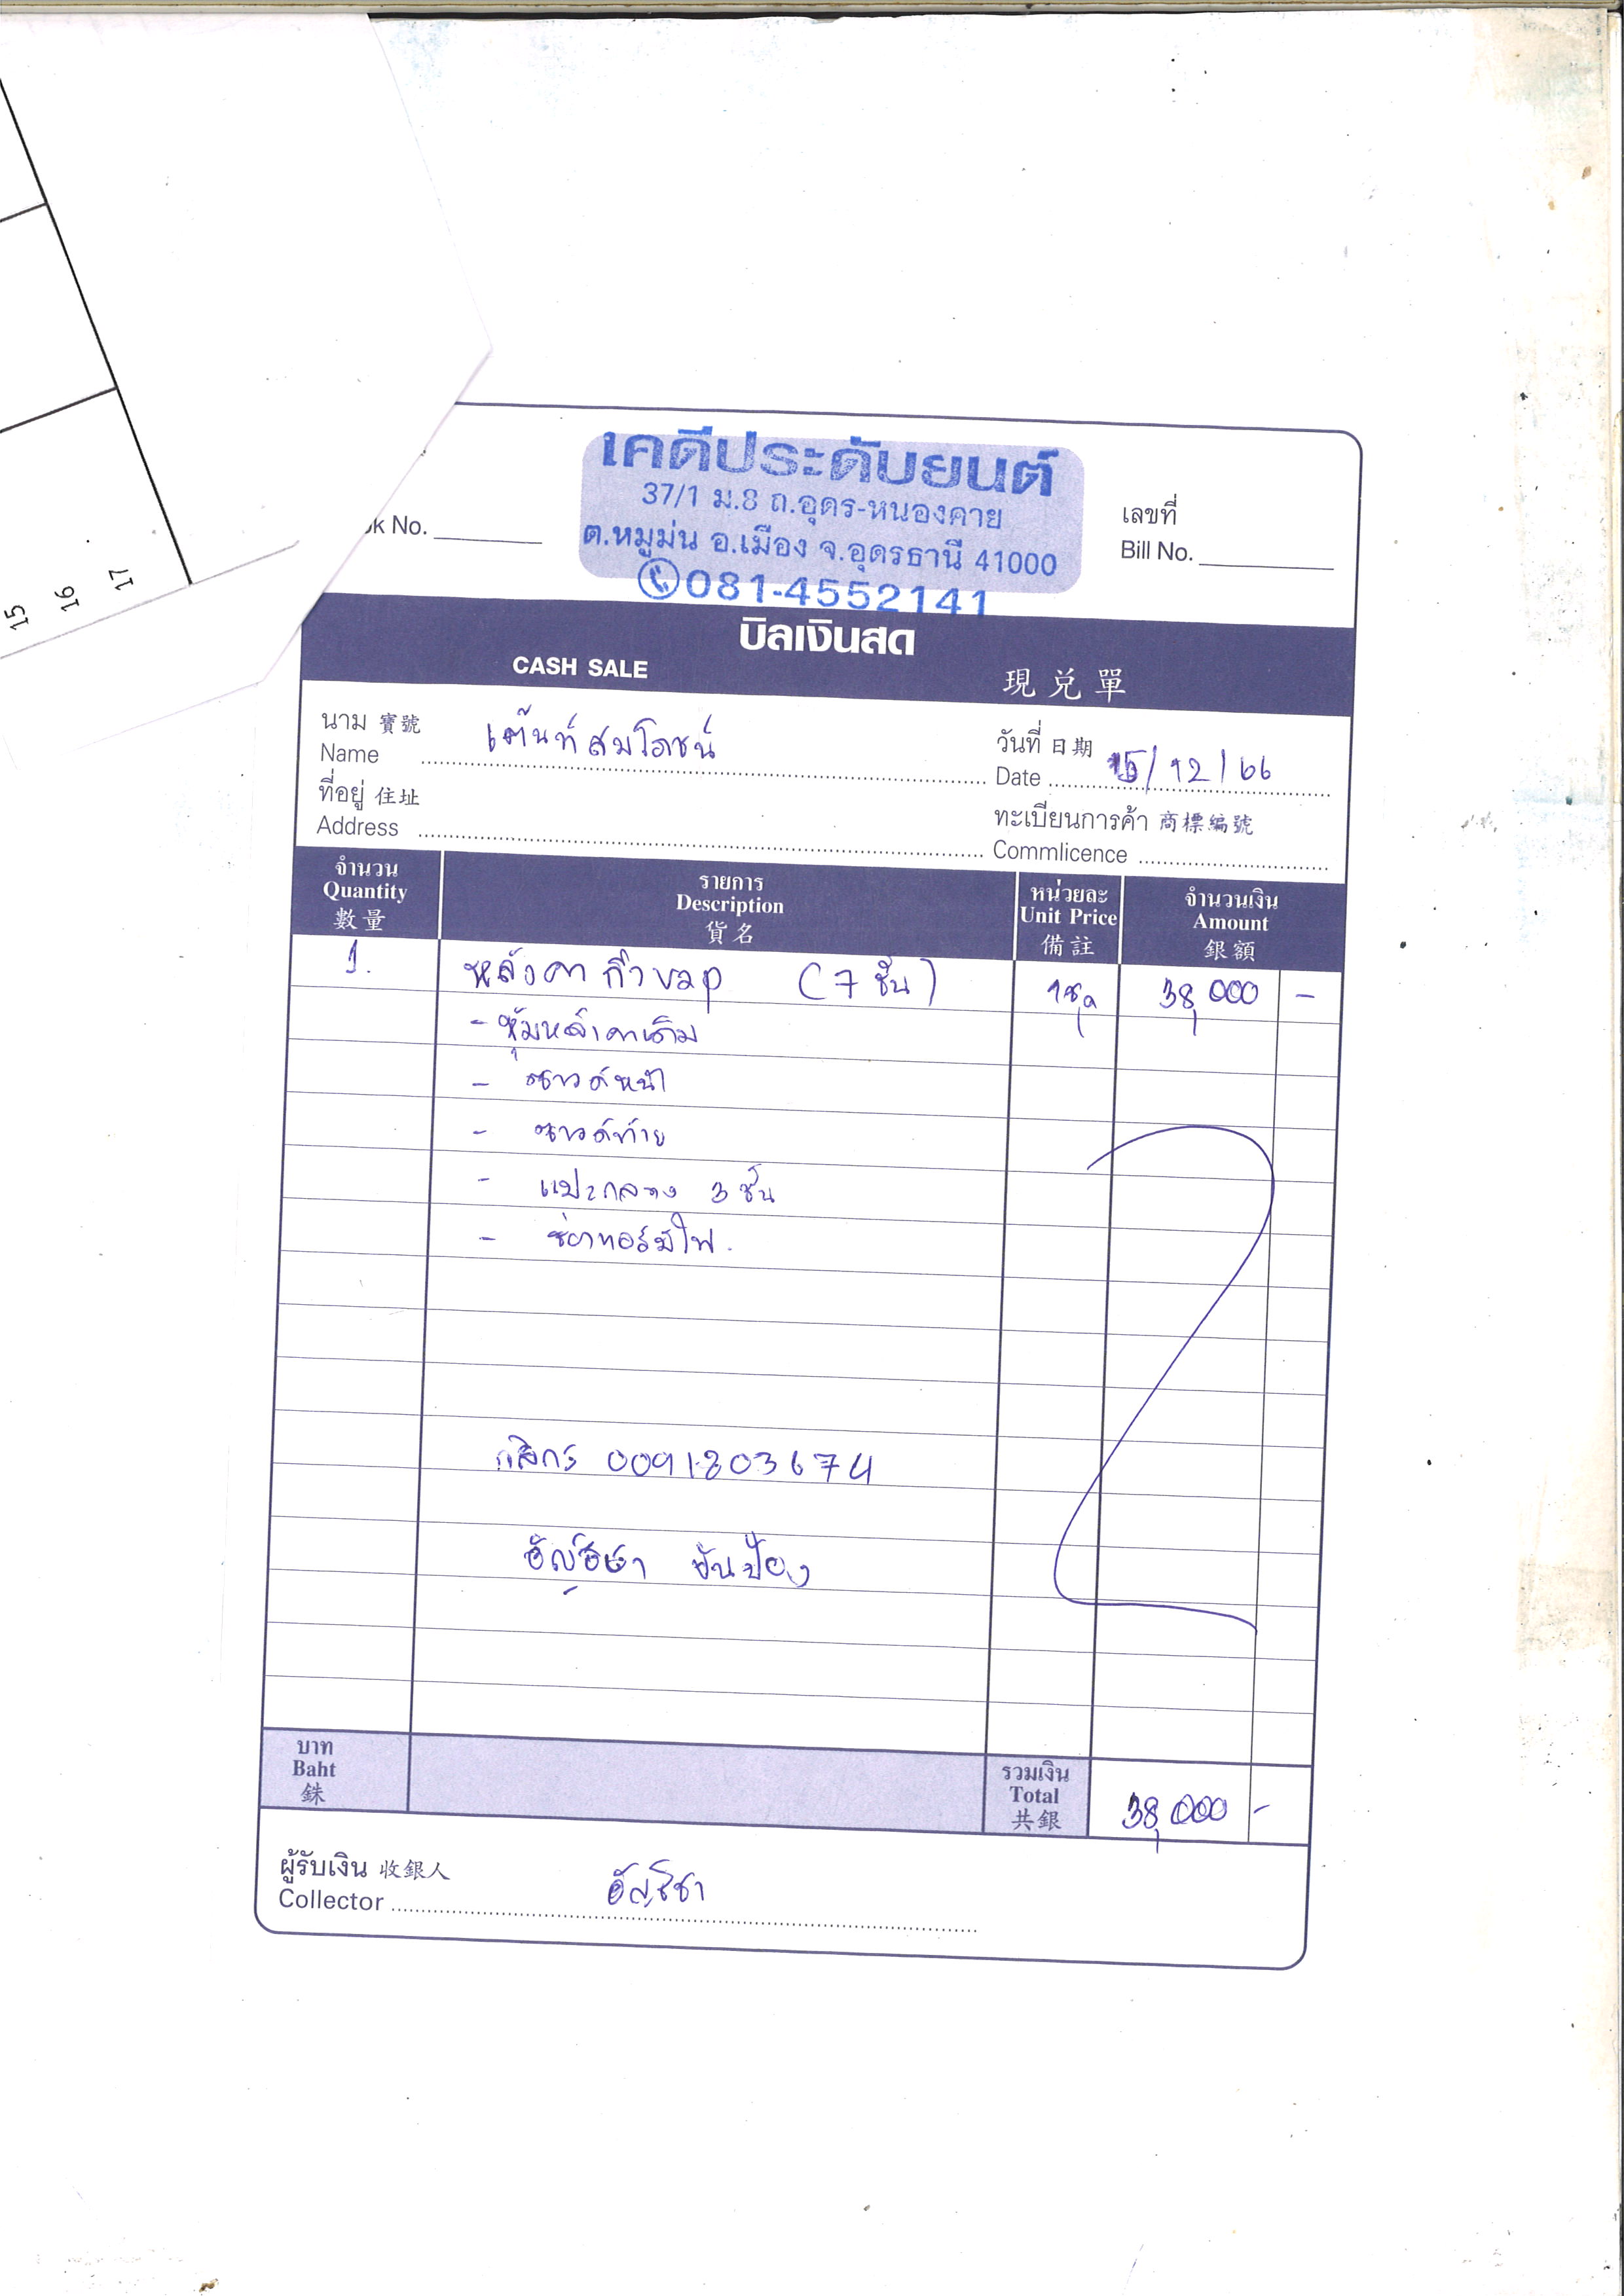 15
16
17
เคดีประดับยนต์
37/1 ม.8 ถ.อุดร-หนองคาย
ต.หมูม่น อ.เมือง จ.อุดรธานี 41000
081-4552141
k No.
เลขที่
Bill No.
บิลเงินสด
CASH SALE
現兌單
นาม 寶號
Name
เต๊นท์สมโภชน์
วันที่ 日期
Date 15/12/66
ที่อยู่ 住址
Address
ทะเบียนการค้า 商標編號
Commlicence
จำนวน
Quantity
數量
รายการ
Description
貨名
หน่วยละ
Unit Price
備註
จำนวนเงิน
Amount
銀額
1. หลังคา (7 ชิ้น) 1ชุด 38,000 -
- หุ้มหลังคาเดิม
- ซาวด์หน้า
- ซาวด์ท้าย
- แปะกลาง 3 ชิ้น
-
กสิกร 0091803674
บาท
Baht
銖
รวมเงิน
Total
共銀
38,000 -
ผู้รับเงิน 收銀人
Collector